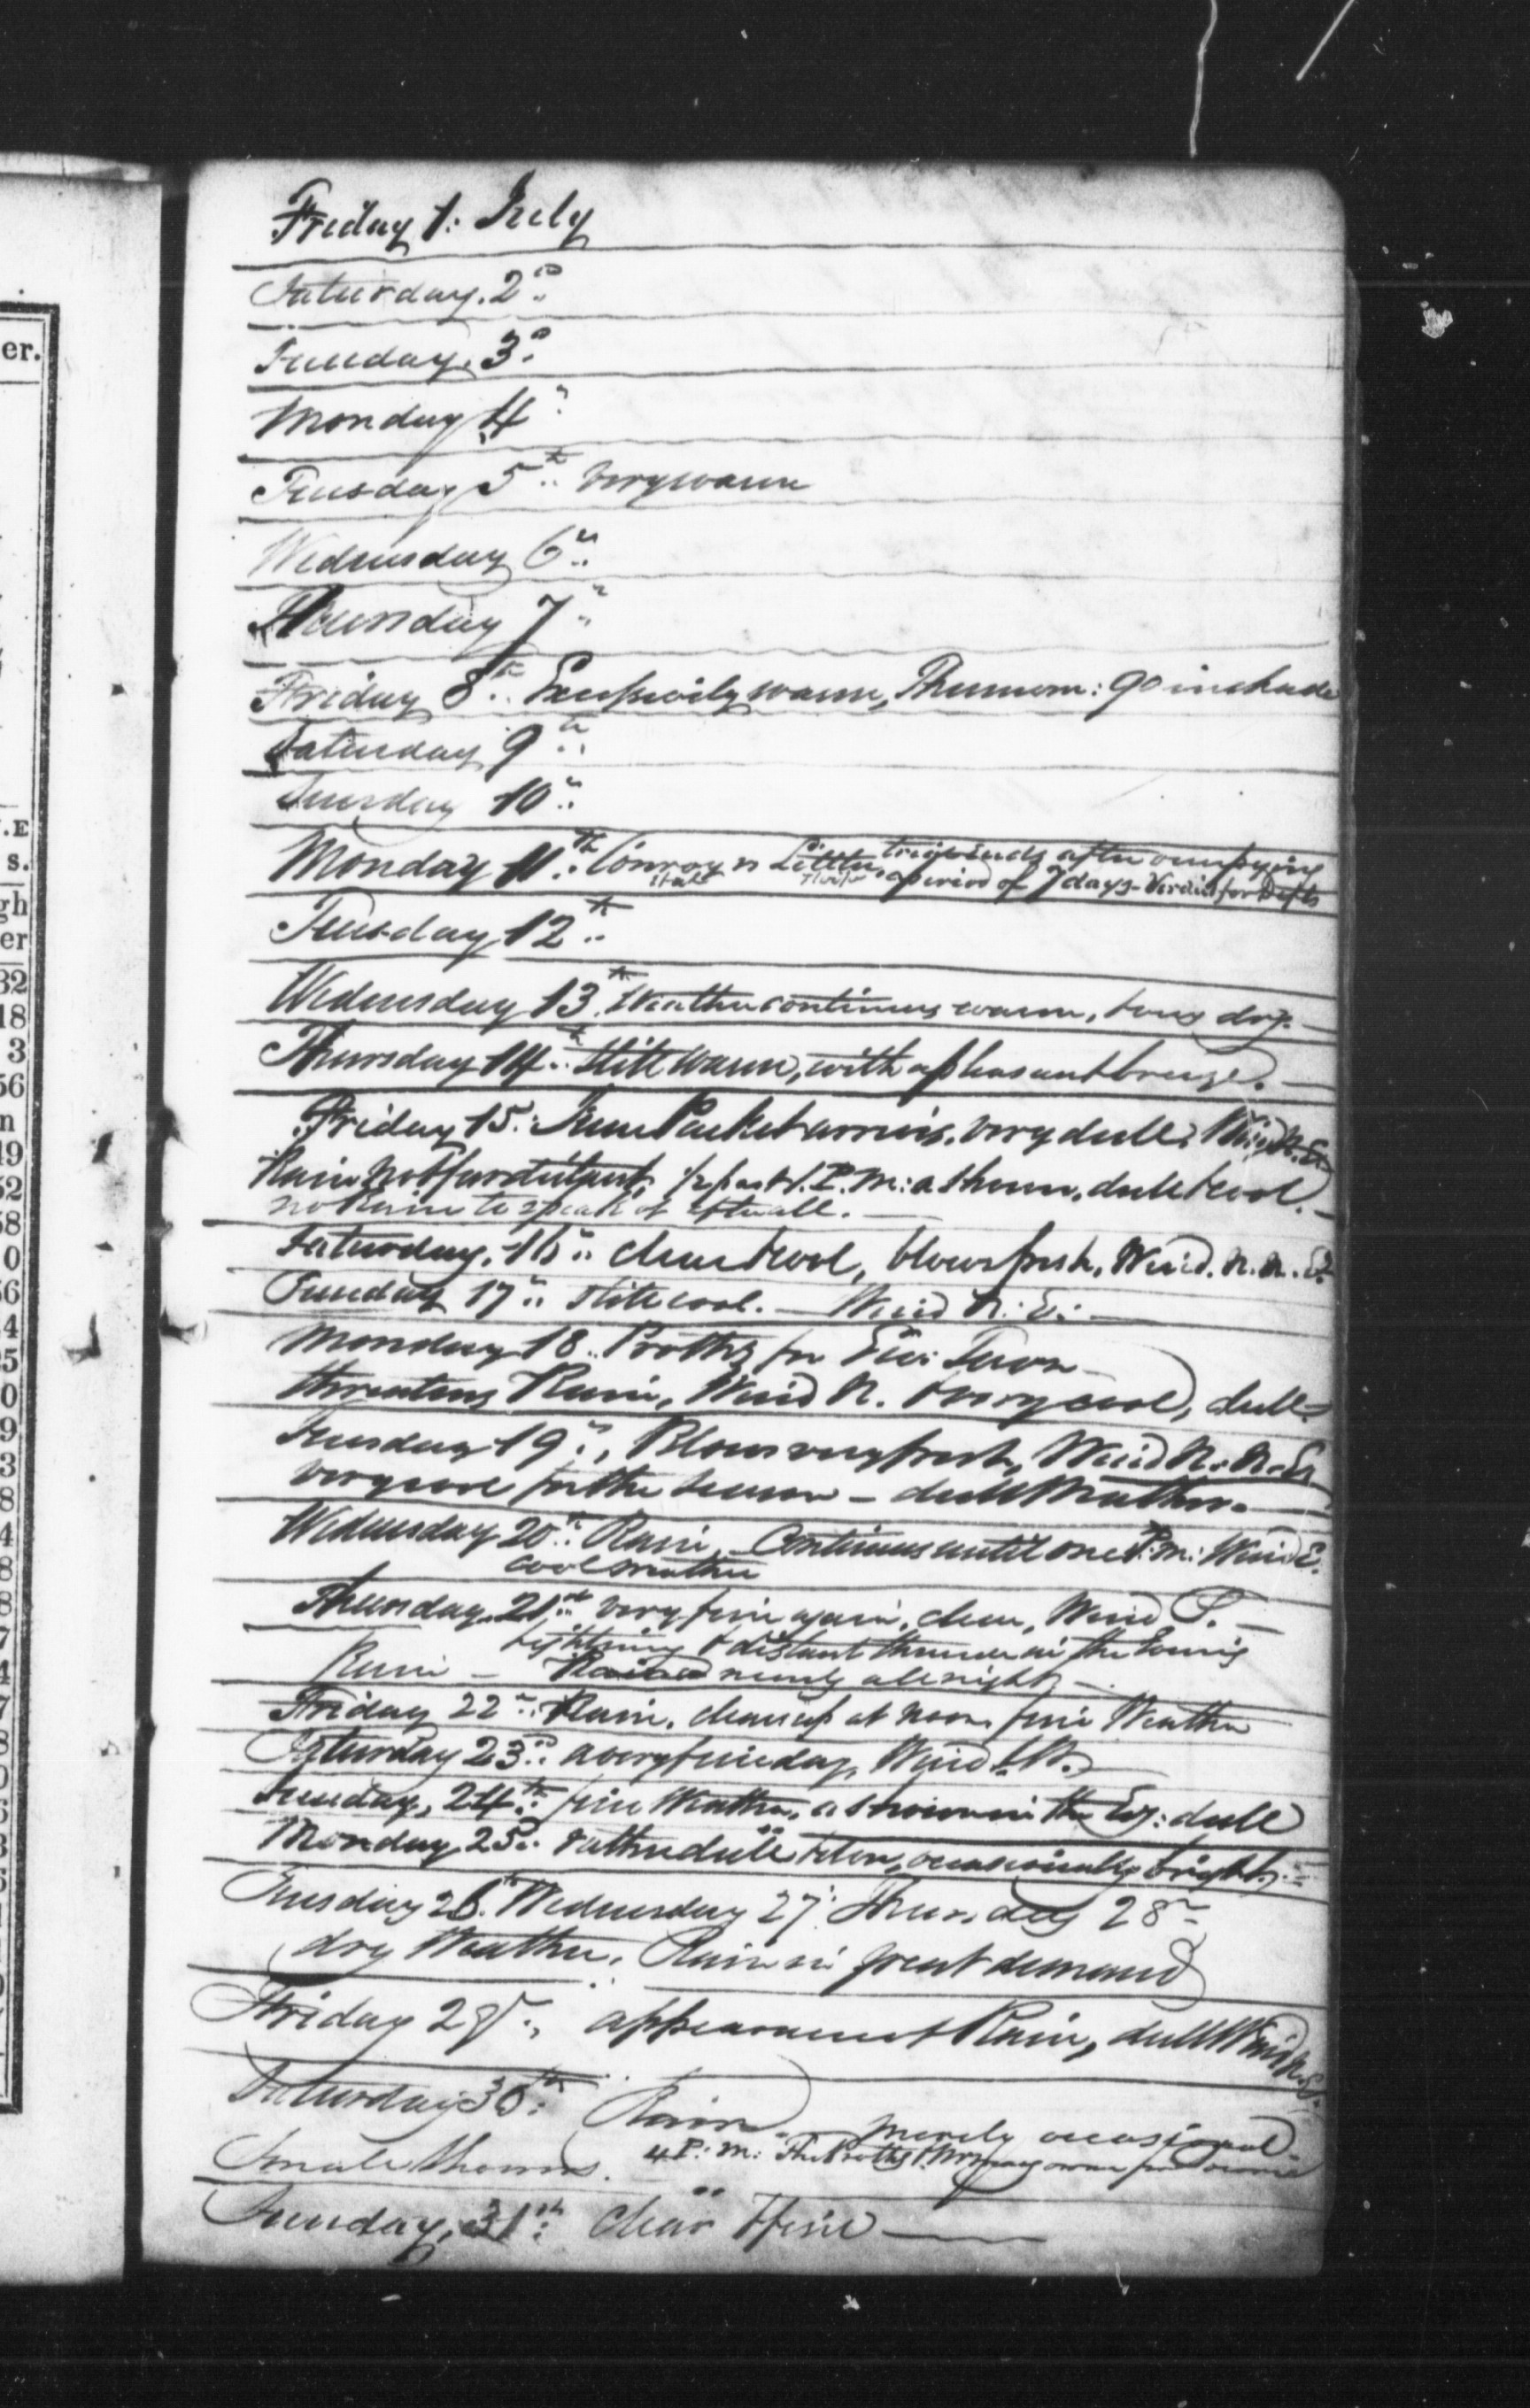 er.
.E
s.
gh
er
32
18
3
56
n
19
52
58
0
56
4
5
0
9
3
8
4
8
8
7
4
7
8
Friday 1: July
Saturday. 2d
Sunday. 3d
Monday 4th
Tuesday 5th Very warm
Wednesday 6th
Thursday 7th
Friday 8th Excessively warm, Thermom: 90 in shade
Saturday 9th
Sunday 10th
Monday 11th Conroy vs Little, after occupying
a period of 7 days - Verdict for Defts
Tuesday 12th
Wednesday 13th Weather continues warm, & very dry. —
Thursday 14th Still warm, with a pleasant breeze. —
Friday 15. June Packet arrives. very dull. Wind N. E.
Rain not far distant, ½ past P. M: a shower, dull & cool. —
no Rain to speak of after all. —
Saturday, 16th clear & cool, blows fresh, Wind. N. N. E.
Sunday 17th still cool. — Wind N: E: —
Monday 18. for Town —
threatens Rain, Wind N. & very cool, dull —
Tuesday 19th, Blows very fresh, Wind N. N. E.
very cool for the season — dull Weather. —
Wednesday 20th Rain, Continues until one P. M: Wind E.
cool weather
Thursday. 21st very fine again, clear, Wind S. —
Lightning & distant thunder in the Evening
Rain — Rained nearly all night —
Friday 22d Rain. clears up at noon, fine Weather
Saturday 23d a very fine day, Wind W.
Sunday, 24th fine Weather, a shower in the Evg: dull
Monday, 25. rather dull occasionally bright. —
Tuesday 26. Wednesday 27. Thursday 28th
dry Weather. Rain in great demand
Friday 29th, appearance of Rain, dull Wind N. E.
Saturday 30th Rain merely occasional
Small showers. 4 P. M:
Sunday, 31st clear & fine —